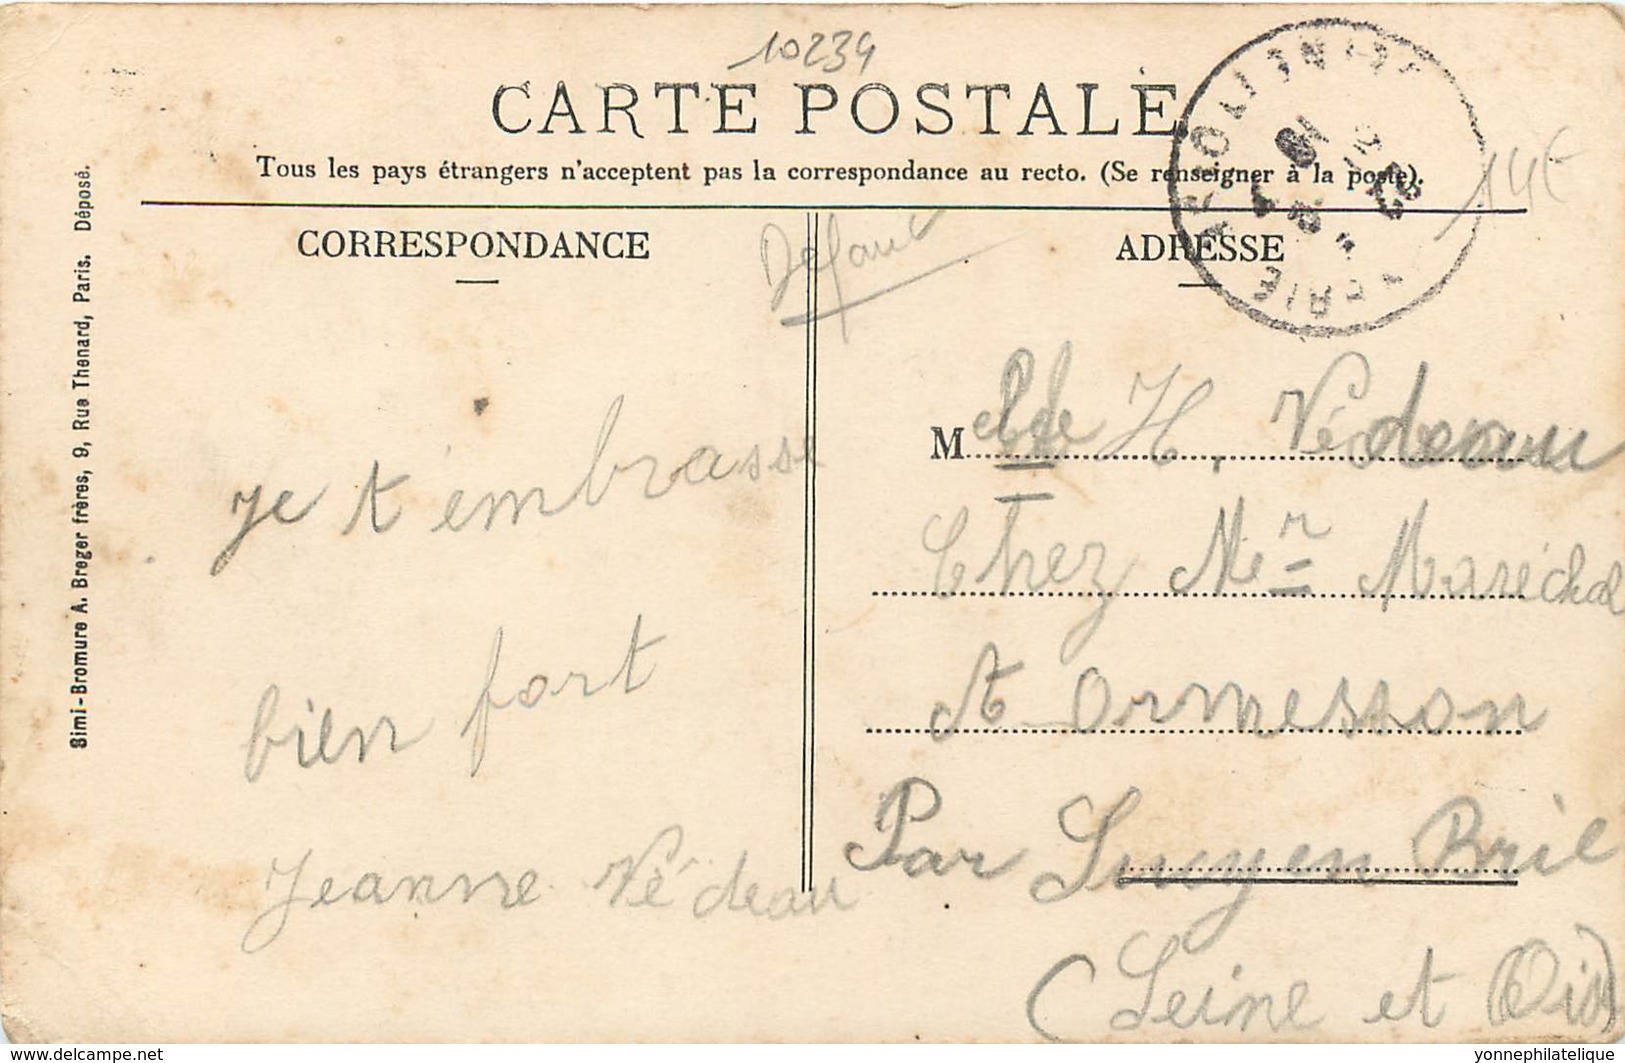 10239
CARTE POSTALE
Tous les pays étrangers n'acceptent pas la correspondance au recto. (Se renseigner à la poste).
14€
CORRESPONDANCE
Défaut
ADRESSE
Simi-Bromure A. Breger frères, 9, Rue Thenard, Paris. Déposé.
je t'embrasse
bien fort
Jeanne Védeau
Melle H. Védeau
Chez Mr Maréchal
A Ormesson
Par Sucy en Brie
(Seine et Oise)
www.delcampe.net
yonnephilatelique